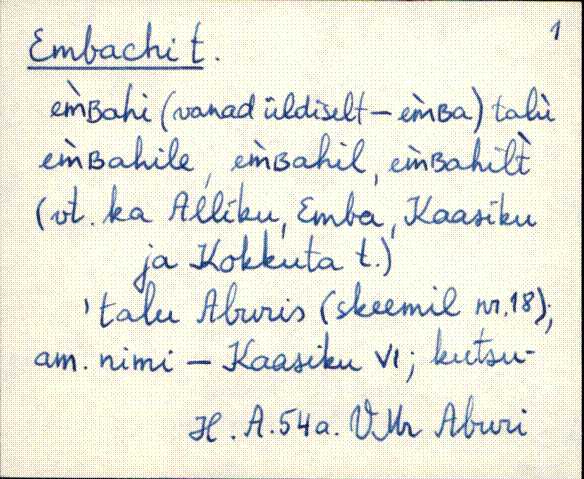 1
Embachi t.
em̀ʙahi (vanad üldiselt – em̀ʙa) talù
em̀ʙahile, em̀ʙahil, em̀ʙahilt̀
(vt. ka Alliku, Emba, Kaasiku
ja Kokkuta t.)
'talu Aburis (skeemil nr. 18);
am. nimi – Kaasiku VI; kutsu-
H. A. 54a. VMr Aburi